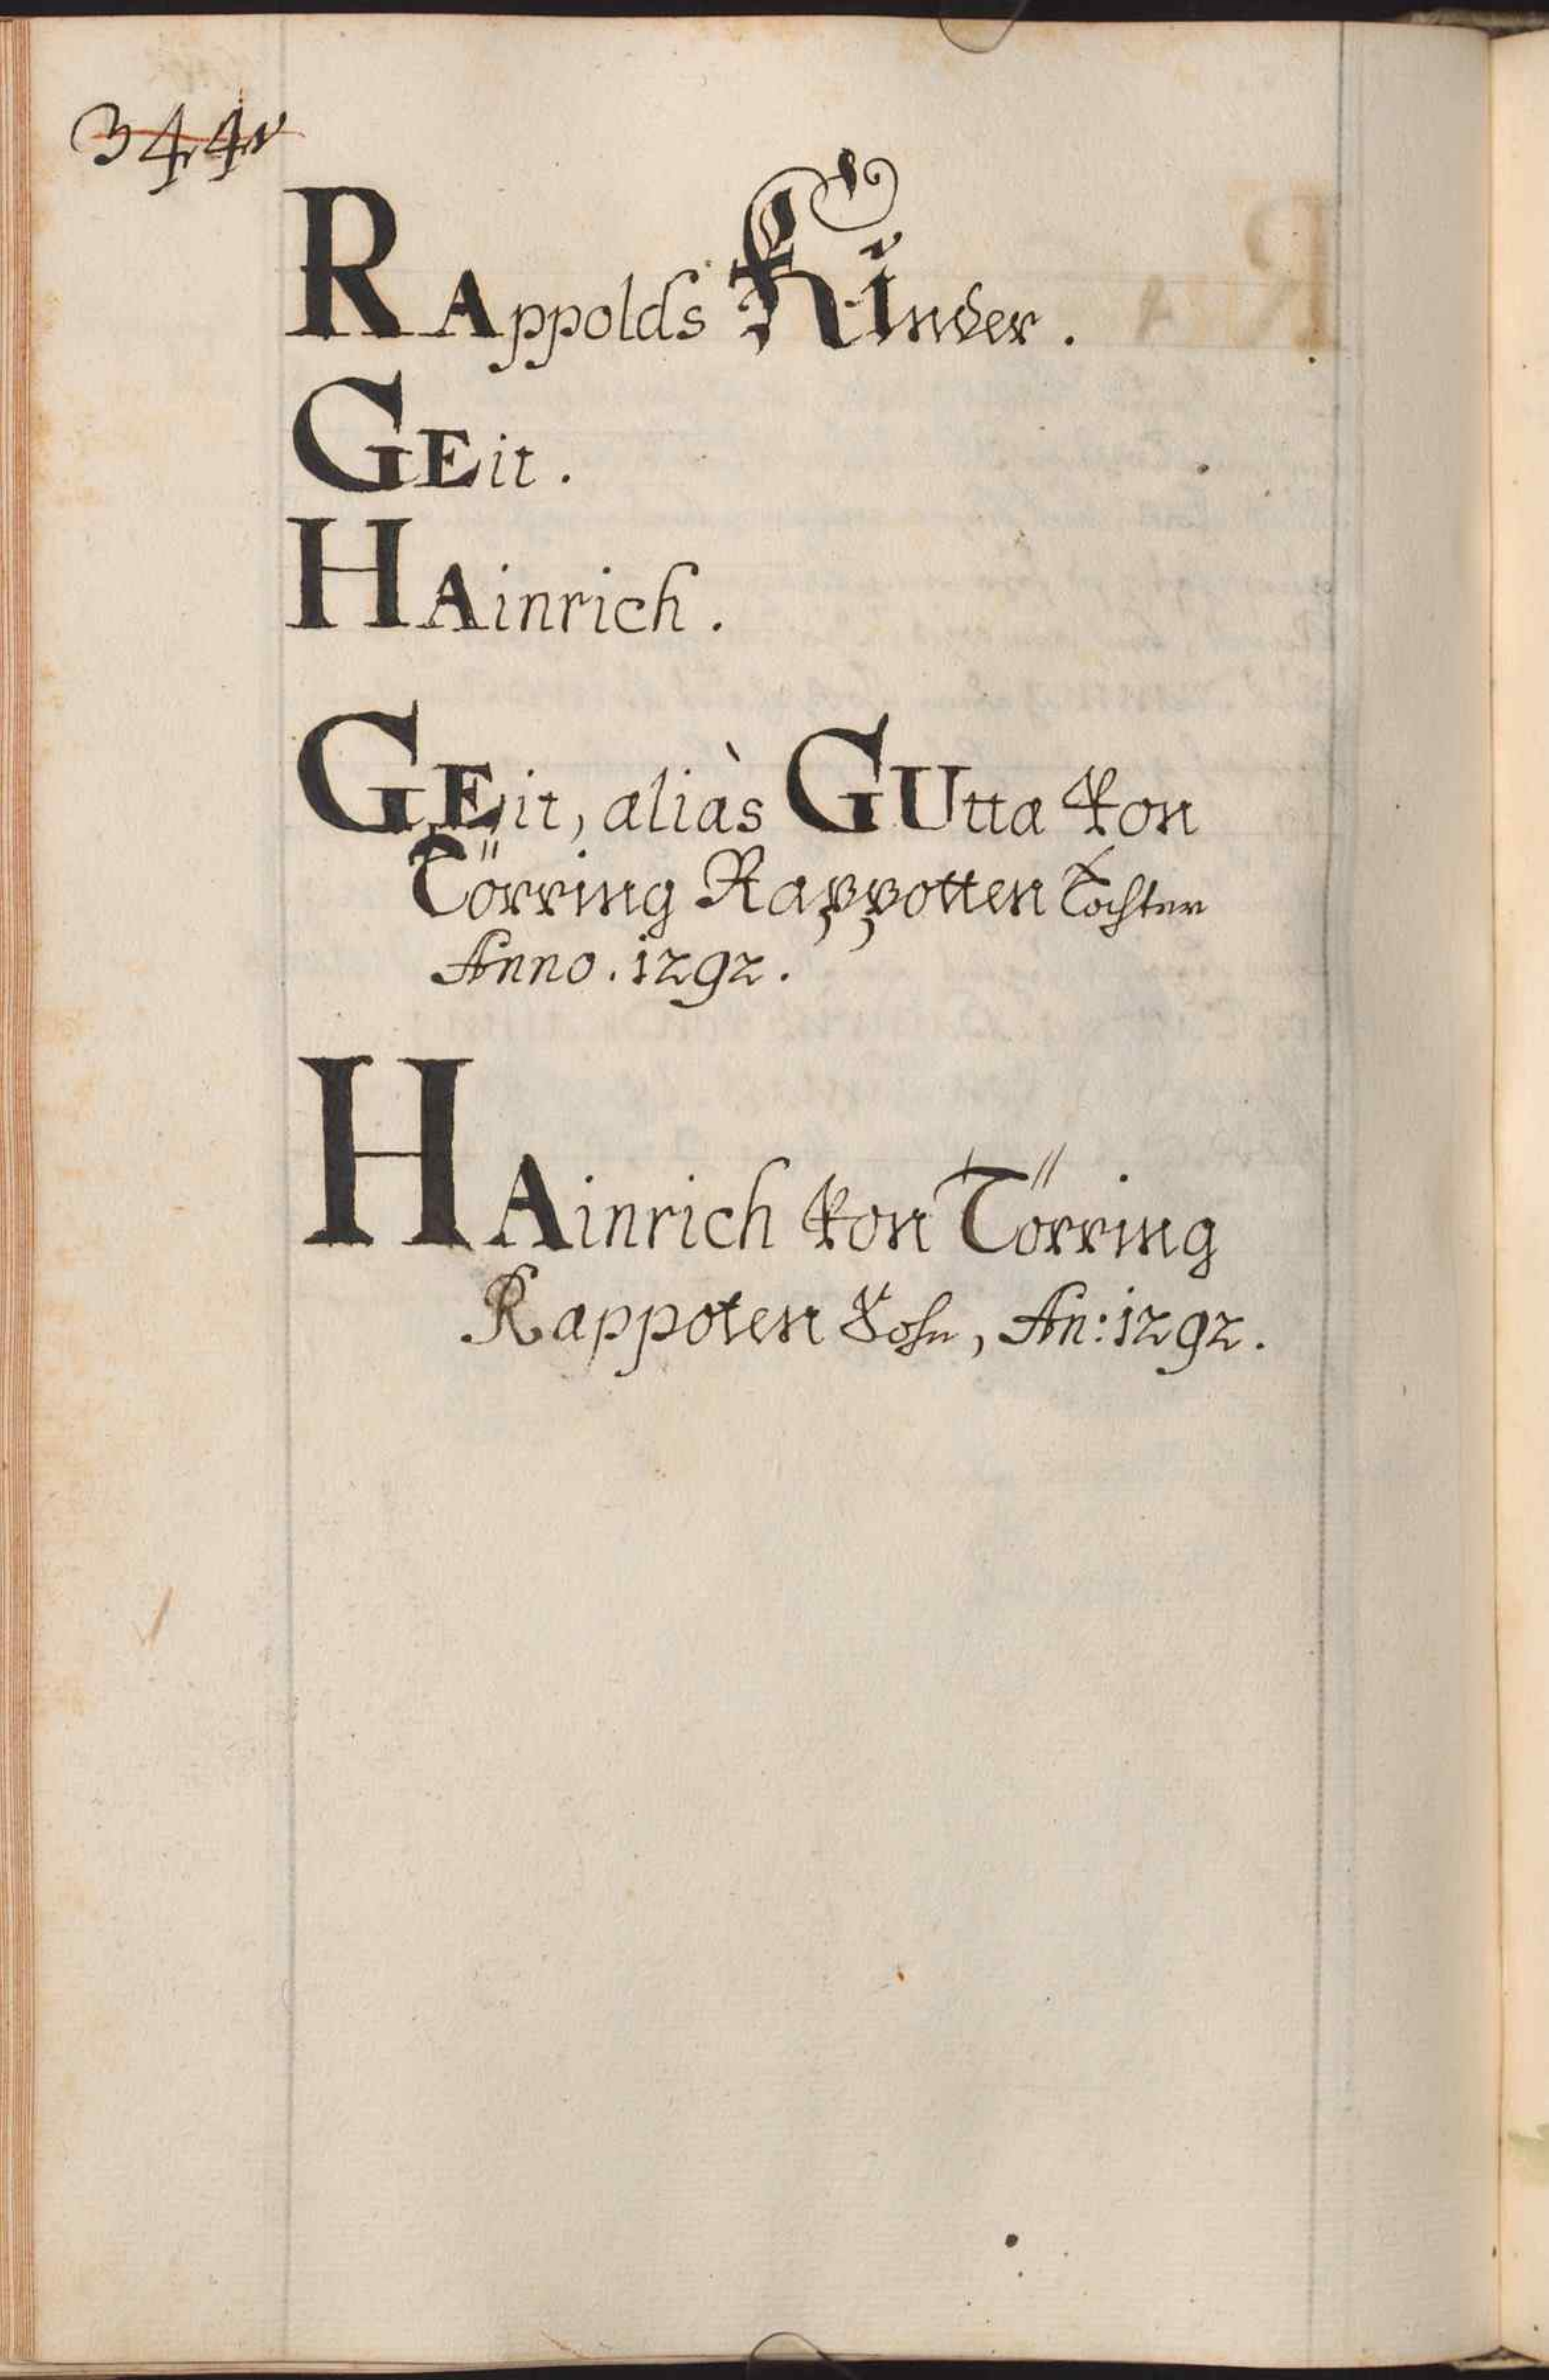 344v
RAppolds Kinder.
GEit.
HAinrich.
GEit, aliàs GUtta von
Törring Rappotten Tochter
Anno. 1292.
HAinrich von Törring
Rappoten Sohn, An: 1292.